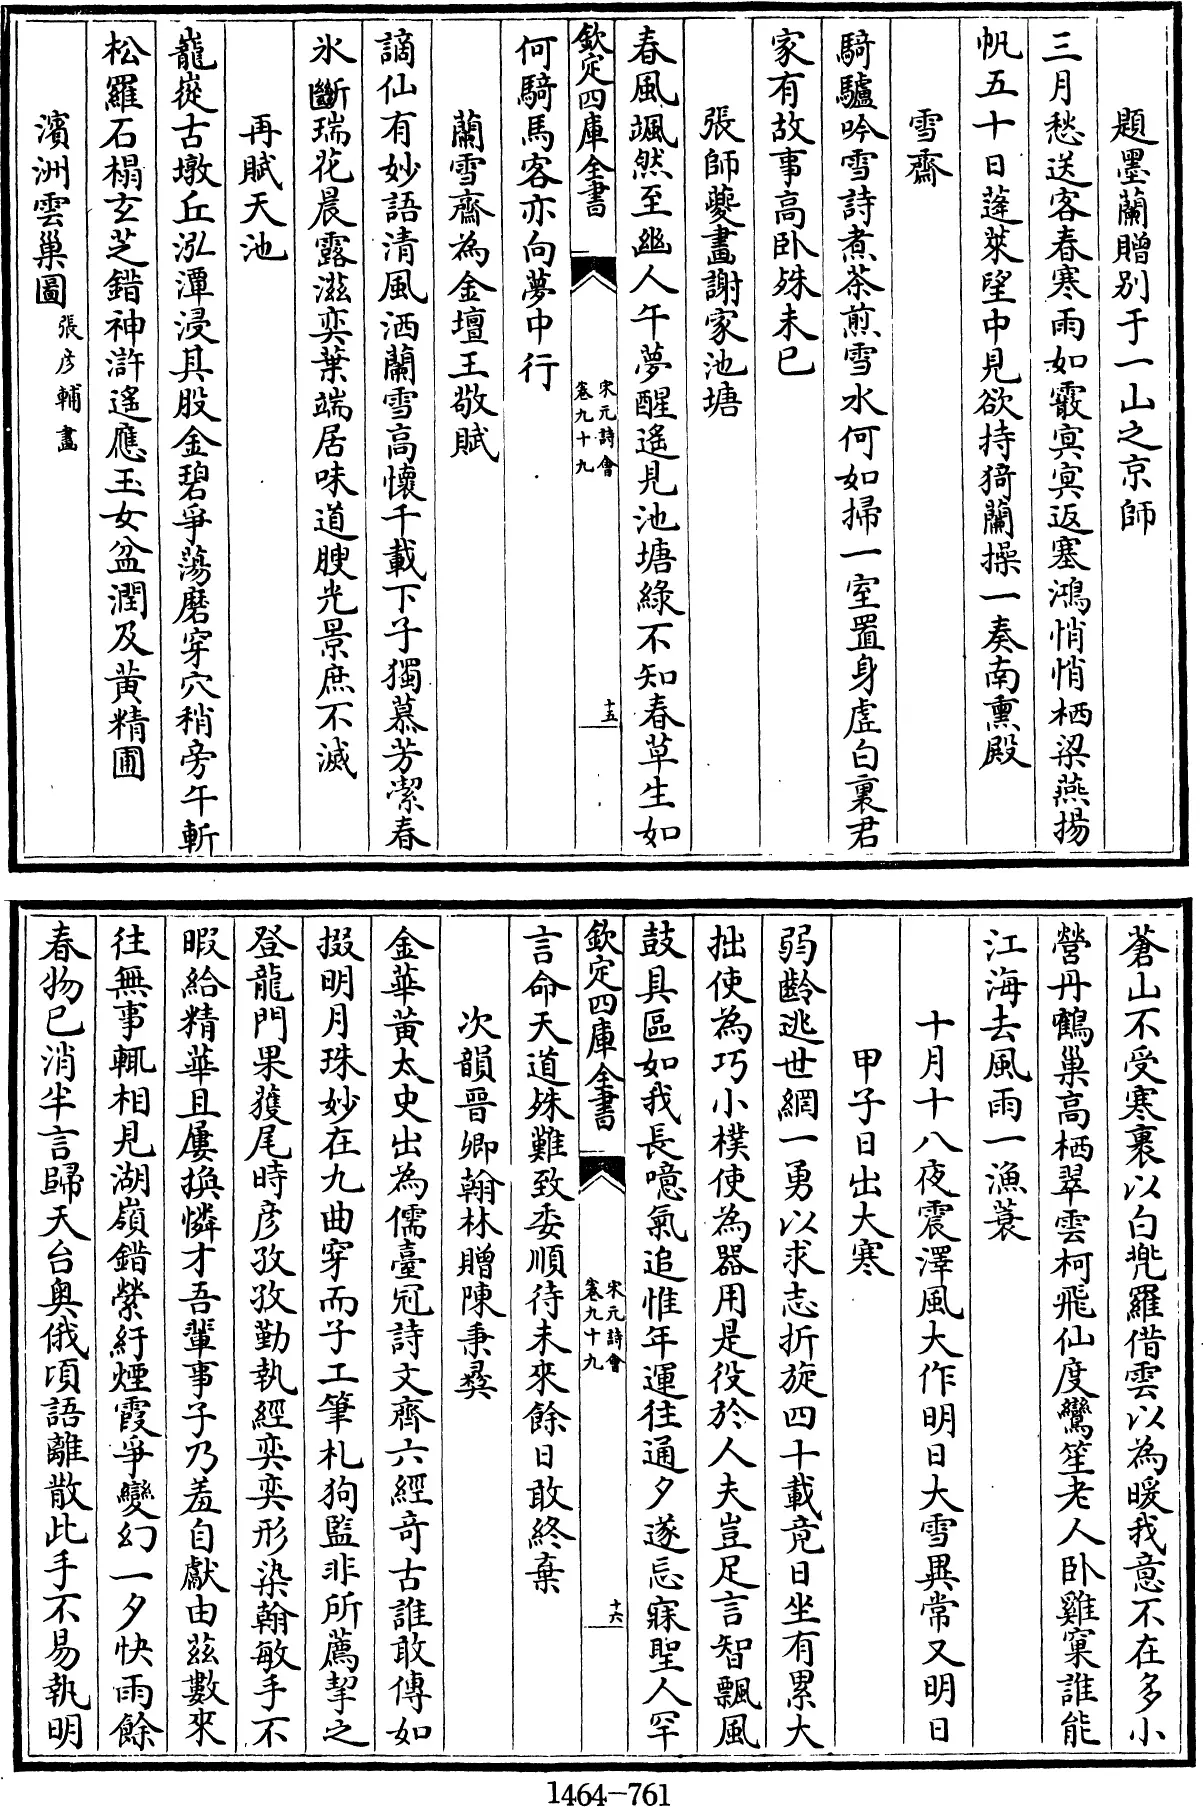 題墨蘭贈别于一山之京師
三月愁送客春寒雨如霰㝠㝠返塞鴻悄悄栖梁燕揚
帆五十日蓬萊望中見欲持猗蘭操一奏南熏殿
雪齋
騎驢吟雪詩煮茶煎雪水何如掃一室置身虛白裏君
家有故事高卧殊未已
張師夔畫謝家池塘
春風颯然至幽人午夢醒遙見池塘綠不知春草生如
欽定四庫全書
宋元詩會
卷九十九
十五
何騎馬客亦向夢中行
蘭雪齋為金壇王敬賦
謫仙有妙語清風洒蘭雪高懷千載下子獨慕芳潔春
氷斷瑞花晨露滋奕葉端居味道腴光景庶不滅
再賦天池
巃嵸古墩丘泓潭浸具股金碧爭蕩磨穿穴稍旁午斬
松羅石榻玄芝錯神滸遙應玉女盆潤及黃精圃
濱洲雲巢圖張彦輔畫
蒼山不受寒裹以白兠羅借雲以為暖我意不在多小
營丹鶴巢高栖翠雲柯飛仙度鸞笙老人卧雞窠誰能
江海去風雨一漁蓑
十月十八夜震澤風大作明日大雪異常又明日
甲子日出大寒
弱齡逃世網一勇以求志折旋四十載竟日坐有累大
拙使為巧小樸使為器用是役於人夫豈足言智飄風
鼓具區如我長噫氣追惟年運往通夕遂忘寐聖人罕
欽定四庫全書
宋元詩會
卷九十九
十六
言命天道殊難致委順待未來餘日敢終棄
次韻晉卿翰林贈陳秉彛
金華黃太史出為儒臺冠詩文齊六經奇古誰敢傳如
掇明月珠妙在九曲穿而子工筆札狗監非所薦挈之
登龍門果獲尾時彦孜孜勤執經奕奕形染翰敏手不
暇給精華且屢換憐才吾輩事子乃羞自獻由茲數來
往無事輒相見湖嶺錯縈紆煙霞爭變幻一夕快雨餘
春物已消半言歸天台奥俄頃語離散此手不易執明
1464-761